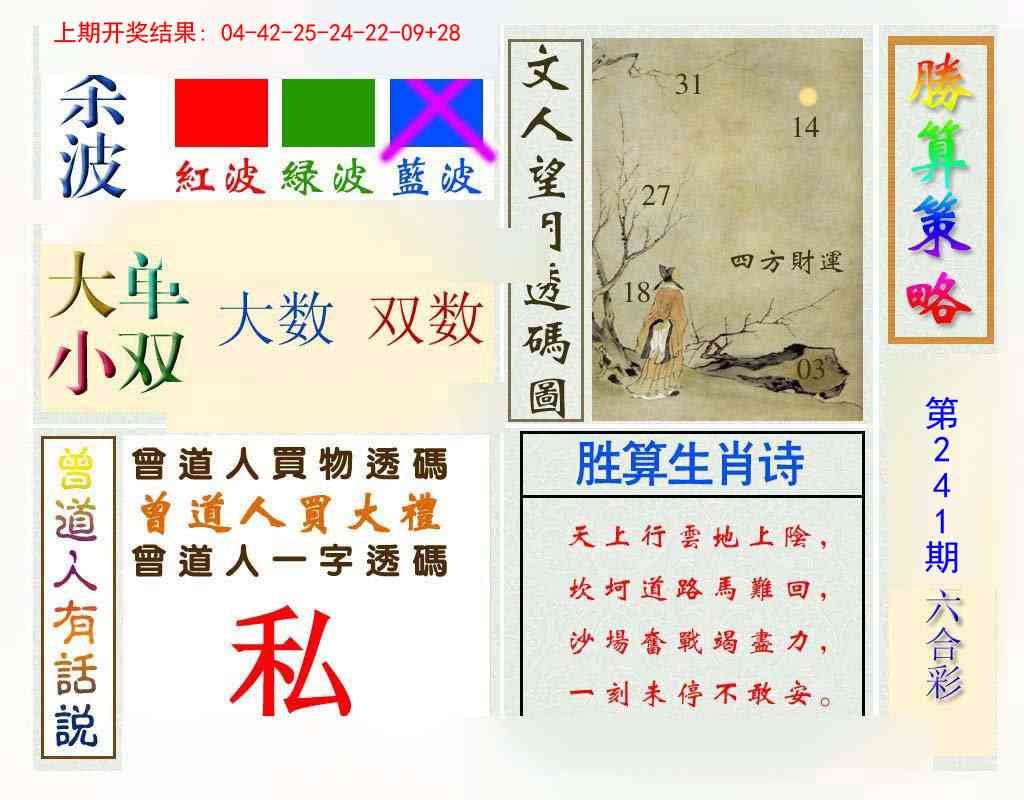 上期开奖结果: 04-42-25-24-22-09+28
杀波
紅波 緑波 藍波
大单
小双
大数 双数
文人望月透碼圖
31
14
27
四方財運
18
03
勝算策略
第241期六合彩
曾道人有話説
曾道人買物透碼
曾道人買大禮
曾道人一字透碼
私
胜算生肖诗
天上行雲地上陰，
坎坷道路馬難回，
沙場奮戰竭盡力，
一刻未停不敢安。